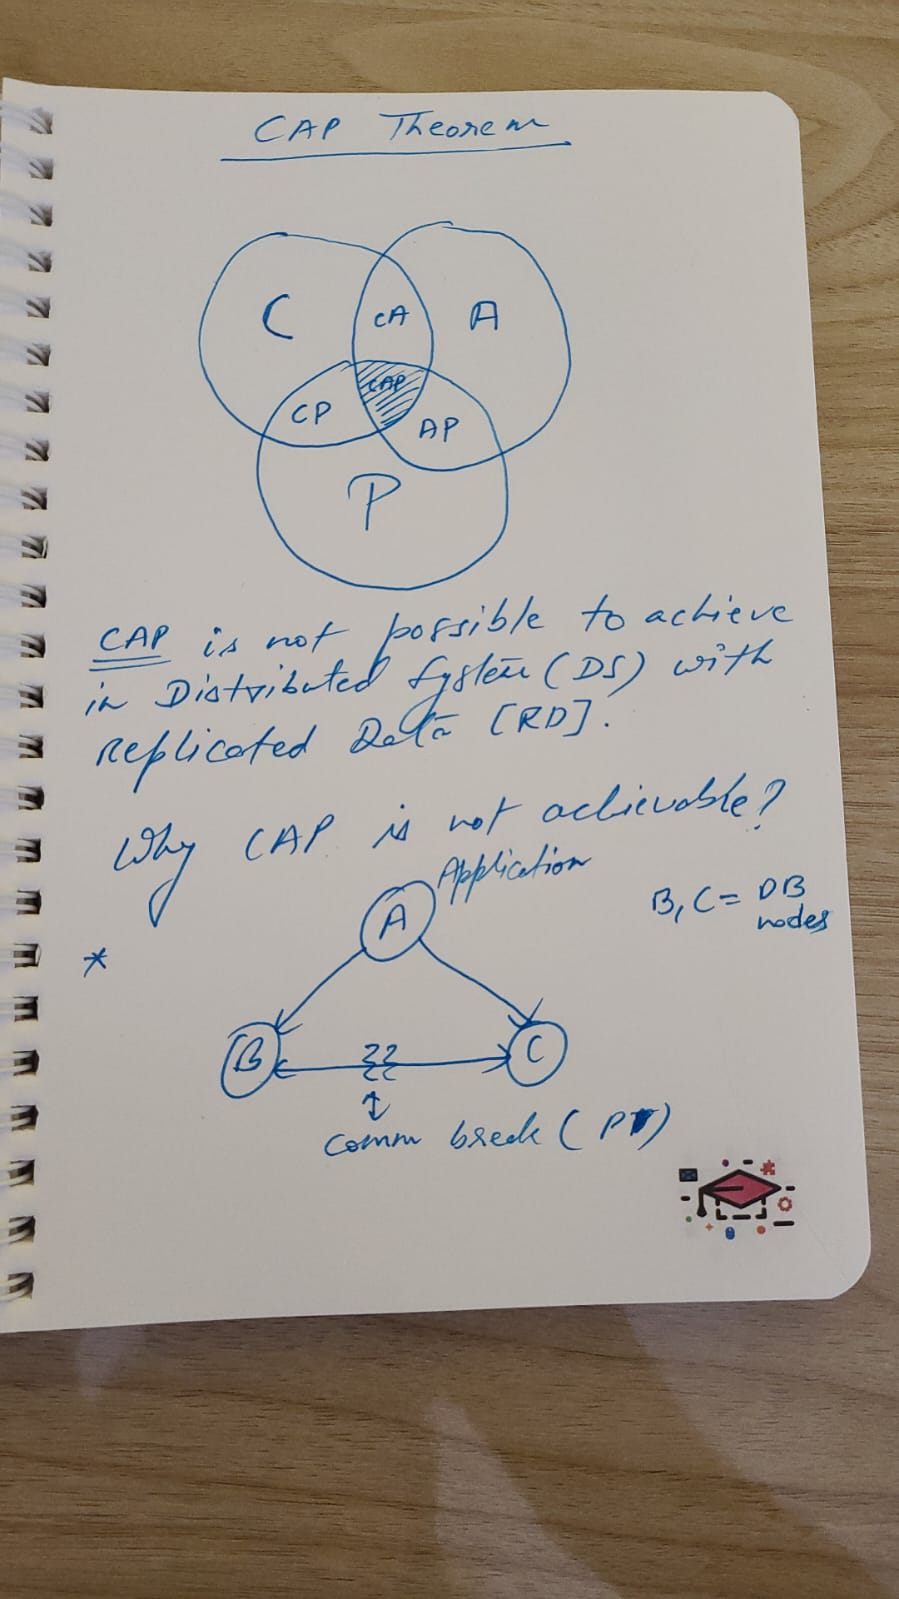 CAP Theorem
C
CA
A
CAP
CP
AP
P
CAP is not possible to achieve
in Distributed System (DS) with
replicated Data [RD].
Why CAP is not achievable?
Application
A
B, C = DB
nodes
*
B
C
Comm break (P)